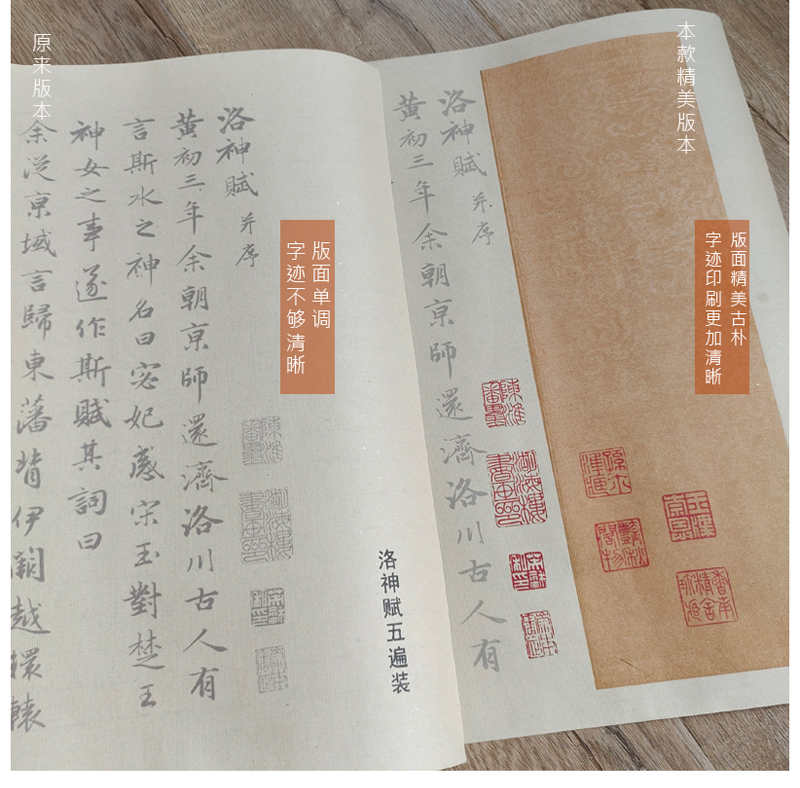 本款精美版本
版面精美古朴
字迹印刷更加清晰
洛神赋 并序
黄初三年余朝京師還濟洛川古人有
原来版本
版面单调
字迹不够清晰
洛神赋五遍装
洛神赋 并序
黄初三年余朝京師還濟洛川古人有
言斯水之神名曰宓妃感宋玉對楚王
神女之事遂作斯賦其詞曰
余從京域言歸東藩背伊闕越轘轅